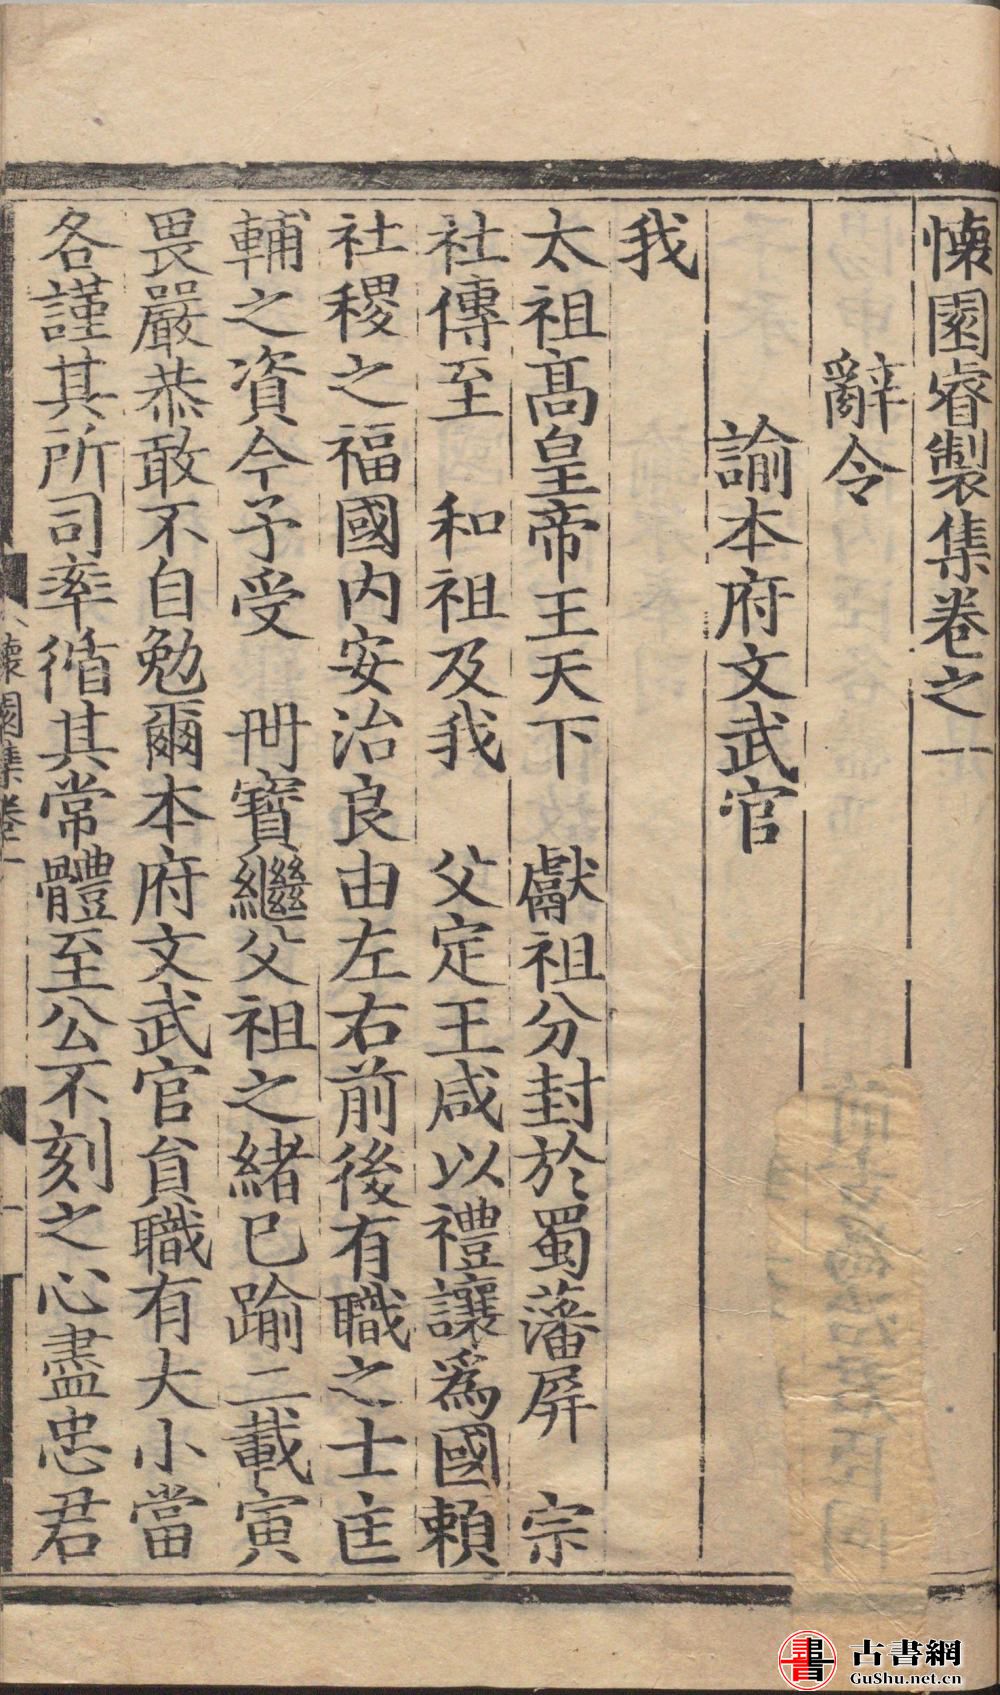 懷園睿製集卷之一
辭令
諭本府文武官
我
太祖高皇帝王天下　獻祖分封於蜀藩屏　宗
社傳至　和祖及我　父定王咸以禮讓爲國賴
社稷之福國内安治良由左右前後有職之士匡
輔之資今予受　冊寶繼父祖之緒已踰二載寅
畏嚴恭敢不自勉爾本府文武官負職有大小當
各謹其所司率循其常體至公不刻之心盡忠君
懷園集卷一
一
書書
古書網
GuShu.net.cn